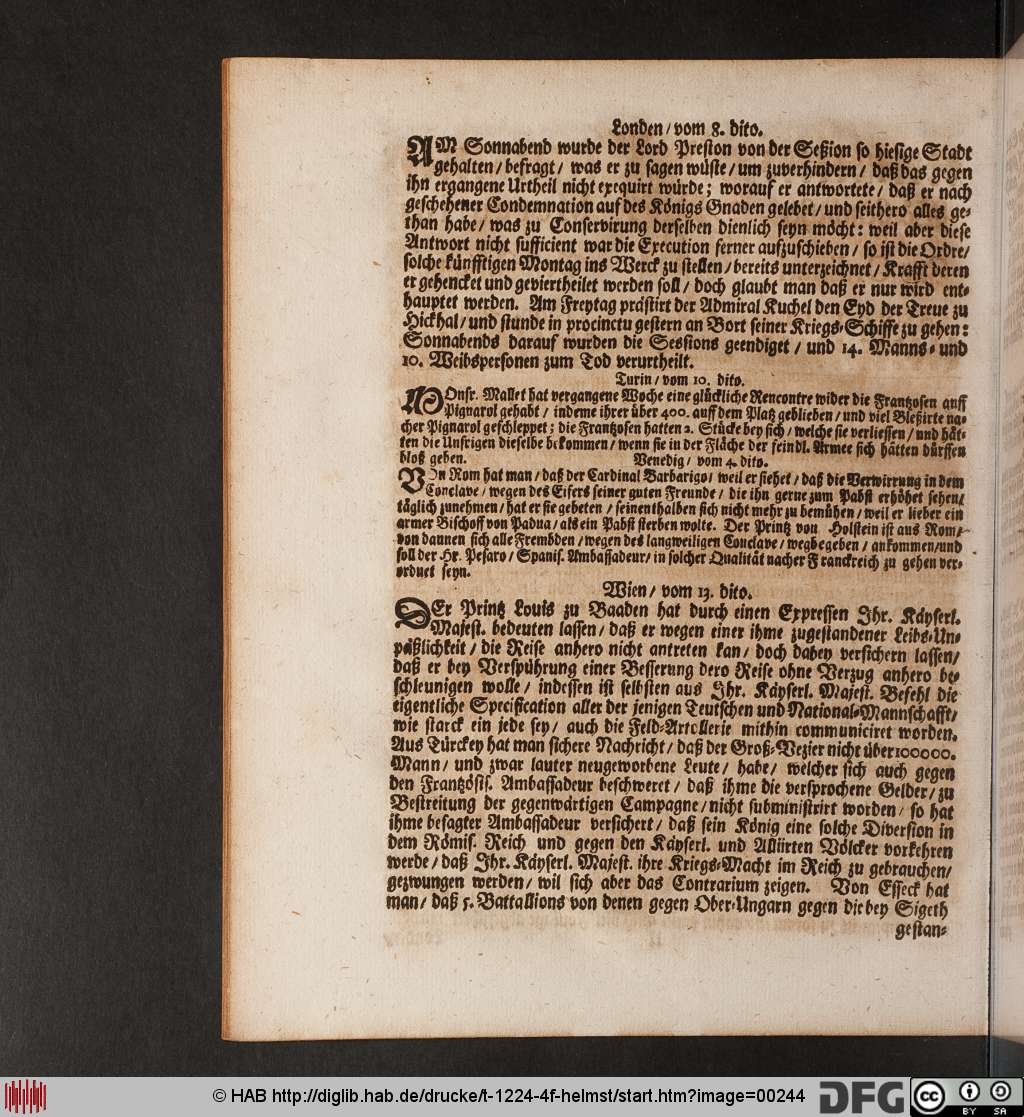 Londen / vom 8. dito.
AM Sonnabend wurde der Lord Preston von der Seßion so hiesige Stadt
gehalten / befragt / was er zu sagen wüste / um zuverhindern / daß das gegen
ihn ergangene Urtheil nicht exequirt würde; worauf er antwortete / daß er nach
geschehener Condemnation auf des Königs Gnaden gelebet / und seithero alles ge-
than habe / was zu Conservirung derselben dienlich seyn möcht: weil aber diese
Antwort nicht sufficient war die Execution ferner aufzuschieben / so ist die Ordre /
solche künfftigen Montag ins Werck zu stellen / bereits unterzeichnet / Krafft deren
er gehencket und geviertheilet werden soll / doch glaubt man daß er nur wird ent-
hauptet werden. Am Freytag prästirt der Admiral Kuchel den Eyd der Treue zu
Hickhal / und stunde in procinctu gestern an Bort seiner Kriegs-Schiffe zu gehen:
Sonnabends darauf wurden die Sessions geendiget / und 14. Manns- und
10. Weibspersonen zum Tod verurtheilt.
Turin / vom 10. dito.
MOnsr. Mallet hat vergangene Woche eine glückliche Rencontre wider die Frantzosen auff
Pignarol gehabt / indeme ihrer über 400. auff dem Platz geblieben / und viel Bleßirte na-
cher Pignarol geschleppet; die Frantzosen hatten 2. Stücke bey sich / welche sie verliessen / und hät-
ten die Unsrigen dieselbe bekommen / wenn sie in der Fläche der feindl. Armee sich hätten dürffen
bloß geben. Venedig / vom 4. dito.
VOn Rom hat man / daß der Cardinal Barbarigo / weil er siehet / daß die Verwirrung in dem
Conclave / wegen des Eifers seiner guten Freunde / die ihn gerne zum Pabst erhöhet sehen /
täglich zunehmen / hat er sie gebeten / seinenthalben sich nicht mehr zu bemühen / weil er lieber ein
armer Bischoff von Padua / als ein Pabst sterben wolte. Der Printz von Holstein ist aus Rom /
von dannen sich alle Frembden / wegen des langweiligen Conclave / wegbegeben / ankommen / und
soll der Hr. Pesaro / Spanis. Ambassadeur / in solcher Qualität nacher Franckreich zu gehen ver-
ordnet seyn.
Wien / vom 13. dito.
DEr Printz Louis zu Baaden hat durch einen Expressen Ihr. Käyserl.
Majest. bedeuten lassen / daß er wegen einer ihme zugestandener Leibs-Un-
päßlichkeit / die Reise anhero nicht antreten kan / doch dabey versichern lassen /
daß er bey Verspührung einer Besserung dero Reise ohne Verzug anhero be-
schleunigen wolle / indessen ist selbsten aus Ihr. Käyserl. Majest. Befehl die
eigentliche Specification aller der jenigen Teutschen und National-Mannschafft /
wie starck ein jede sey / auch die Feld-Artollerie mithin communiciret worden.
Aus Türckey hat man sichere Nachricht / daß der Groß-Vezier nicht über 100000.
Mann / und zwar lauter neugeworbene Leute / habe / welcher sich auch gegen
den Frantzösis. Ambassadeur beschweret / daß ihme die versprochene Gelder / zu
Bestreitung der gegenwärtigen Campagne / nicht subministrirt worden / so hat
ihme besagter Ambassadeur versichert / daß sein König eine solche Diversion in
dem Römis. Reich und gegen den Käyserl. und Alliirten Völcker vorkehren
werde / daß Ihr. Käyserl. Majest. ihre Kriegs-Macht im Reich zu gebrauchen /
gezwungen werden / wil sich aber das Contrarium zeigen. Von Esseck hat
man / daß 5. Battallions von denen gegen Ober-Ungarn gegen die bey Sigeth
gestan-
© HAB http://diglib.hab.de/drucke/t-1224-4f-helmst/start.htm?image=00244
DFG
cc
BY SA